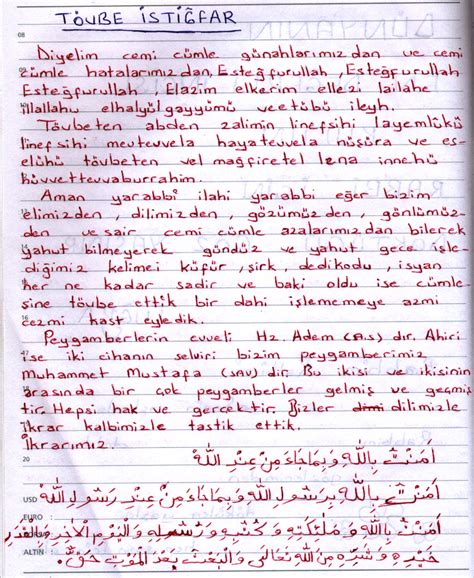 TÖVBE İSTİĞFAR
08
Diyelim cemi cümle günahlarımızdan ve cemi
cümle hatalarımızdan, Esteğfurullah, Esteğfurullah
Esteğfurullah, Elazim elkerim ellezi lailahe
illallahu elhalyül gayyümü veetübü ileyh.
Tövbeten abden zalimin linefsihi layemlikü
linefsihi meuteuvela hayateuvela nüşüra ve es-
elühü tövbeten vel mağfiretel lena innehü
hüvvettevvaburrahim.
Aman yarabbi ilahi yarabbi eğer bizim
elimizden, dilimizden, gözümüzden, gönlümüz-
den vesair cemi cümle azalarımızdan bilerek
yahut bilmeyerek gündüz ve yahut gece işle-
diğimiz kelimei küfür, şirk, dedikodu, isyan
her ne kadar sadir ve baki oldu ise cümle-
sine tövbe ettik bir dahi işlememeye azmi
cezmi kast eyledik.
Peygamberlerin evveli Hz. Adem (A.S) dır. Ahiri
ise iki cihanın selviri bizim peygamberimiz
Muhammet Mustafa (SAV) dir. Bu ikisi ve ikisinin
arasında bir çok peygamberler gelmiş ve geçmiş
tir. Hepsi hak ve gerçektir. Bizler dilimizle
ikrar kalbimizle tastik ettik.
İkrarımız.
20
اٰمَنْتُ بِاللّٰهِ وَبِمَا جَاءَ مِنْ عِنْدِ اللّٰهِ
USD اٰمَنْتُ بِاللّٰهِ بِرَسُولِ اللّٰهِ وَبِمَا جَاءَ مِنْ عِنْدِ رَسُولِ اللّٰهِ
EURO
اٰمَنْتُ بِاللّٰهِ وَمَلٰئِكَتِهِ وَكُتُبِهِ وَرُسُلِهِ وَالْيَوْمِ الْاٰخِرِ وَالْقَدَرِ
ALTIN خَيْرِهِ وَشَرِّهِ مِنَ اللّٰهِ تَعَالٰى وَالْبَعْثُ بَعْدَ الْمَوْتِ حَقٌّ